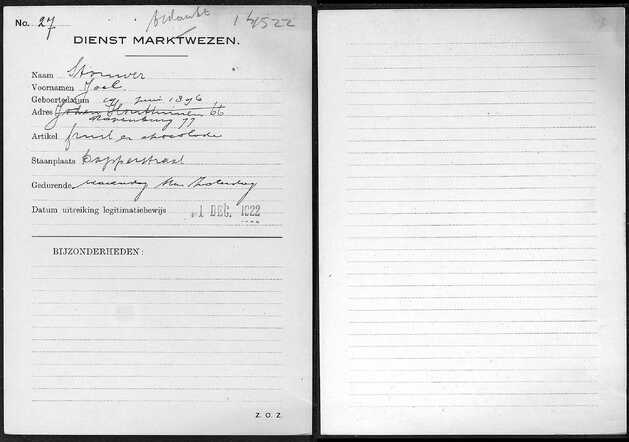 No. 27 bedankt 14522
DIENST MARKTWEZEN.
Naam Stouwer
Voornamen Joel
Geboortedatum Juni 1896
Adres 66
Ravenburg 77
Artikel fruit en chocolade
Staanplaats
Gedurende Zaterdag
Datum uitreiking legitimatiebewijs 1 DEC. 1922
BIJZONDERHEDEN:
Z. O. Z.